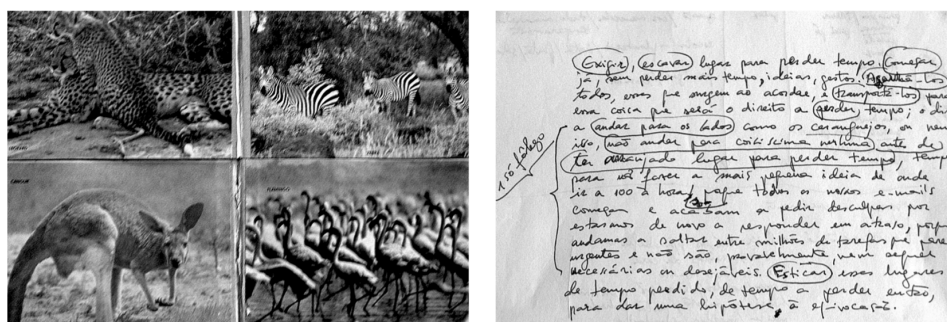 FLAMINGOS
1 só fôlego
Exigir, escavar lugar para perder tempo. Começar
já, sem perder mais tempo, ideias, gestos. Agarrá-los
todos, esses que surgem ao acordar, e transportá-los para
essa coisa que seria o direito a perder tempo; o
a andar para os lados como os caranguejos, ou nem
isso, não andar para coisíssima nenhuma antes de
ter arranjado lugar para perder tempo, tempo
para não fazer a mais pequena ideia de onde
ir a 100 à hora, todos os nossos e-mails
começam e acabam a pedir desculpas por
estarmos de novo a responder em atraso, porque
andamos a saltar entre milhões de tarefas que
urgentes e não são, provavelmente, nem sequer
necessárias ou desejáveis. Esticar esses lugares
de tempo perdido, de tempo a perder então,
para dar uma hipótese à